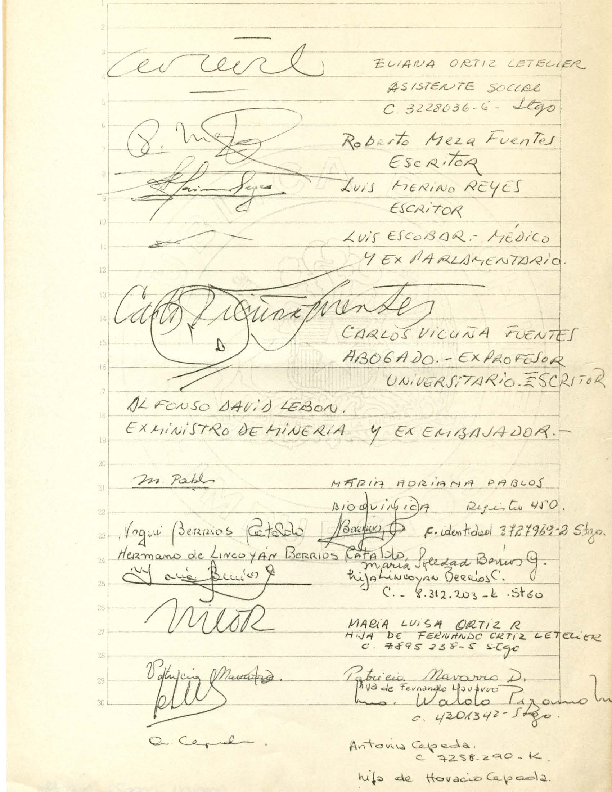 3
4
ELIANA ORTIZ LETELIER
ASISTENTE SOCIAL
5
C. 3228036-6- Stgo.
6
R. Meza
Roberto Meza Fuentes
7
ESCRITOR
8
LUIS MERINO REYES
9
ESCRITOR
10
11
LUIS ESCOBAR.- MÉDICO
12
Y EX PARLAMENTARIO.
13
14
Carlos Vicuña Fuentes
CARLOS VICUÑA FUENTES
15
ABOGADO.- EXPROFESOR
16
UNIVERSITARIO. ESCRITOR
17
ALFONSO DAVID LEBON.
18
EXMINISTRO DE MINERIA Y EX EMBAJADOR.-
19
20
21
M. Pablos
MARIA ADRIANA PABLOS
22
BIOQUIMICA Registro 450.
23
BERRIOS Cataldo C. identidad 2727969-2 Stgo.
24
Hermano de LINCOYAN BERRIOS CATALDO.
Maria Soledad Berrios G.
25
hija Lincoyan Berrios C.
C.- 8.312.203-K. Stgo
26
27
MARIA LUISA ORTIZ R
HIJA DE FERNANDO ORTIZ LETELIER
C. 7895258-5 Stgo
28
29
Patricia Navarro
Patricia Navarro D.
Hija de Fernando Navarro
30
Waldo Pizarro M
C. 4201342- Stgo.
A. Cepeda
Antonia Cepeda.
C 7258.290-K.
hija de Horacio Cepeda.